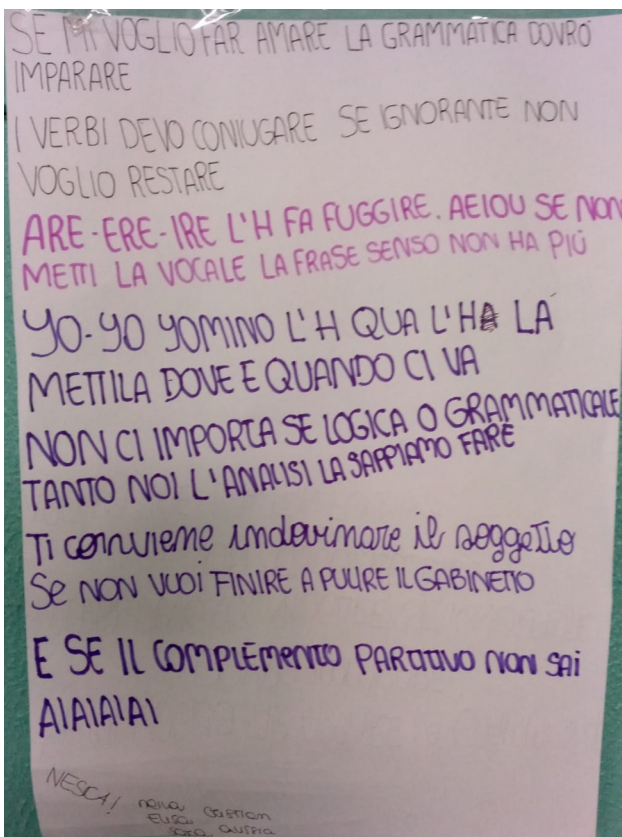 SE MI VOGLIO FAR AMARE LA GRAMMATICA DOVRÒ
IMPARARE
I VERBI DEVO CONIUGARE SE IGNORANTE NON
VOGLIO RESTARE
ARE-ERE-IRE L'H FA FUGGIRE. AEIOU SE NON
METTI LA VOCALE LA FRASE SENSO NON HA PIÙ
YO-YO YOMINO L'H QUA L'H LÀ
METTILA DOVE E QUANDO CI VA
NON CI IMPORTA SE LOGICA O GRAMMATICALE
TANTO NOI L'ANALISI LA SAPPIAMO FARE
Ti conviene indovinare il soggetto
SE NON VUOI FINIRE A PULIRE IL GABINETTO
E SE IL COMPLEMENTO PARTITIVO NON SAI
AIAIAIAI
NESCA!
ELISA
SARA